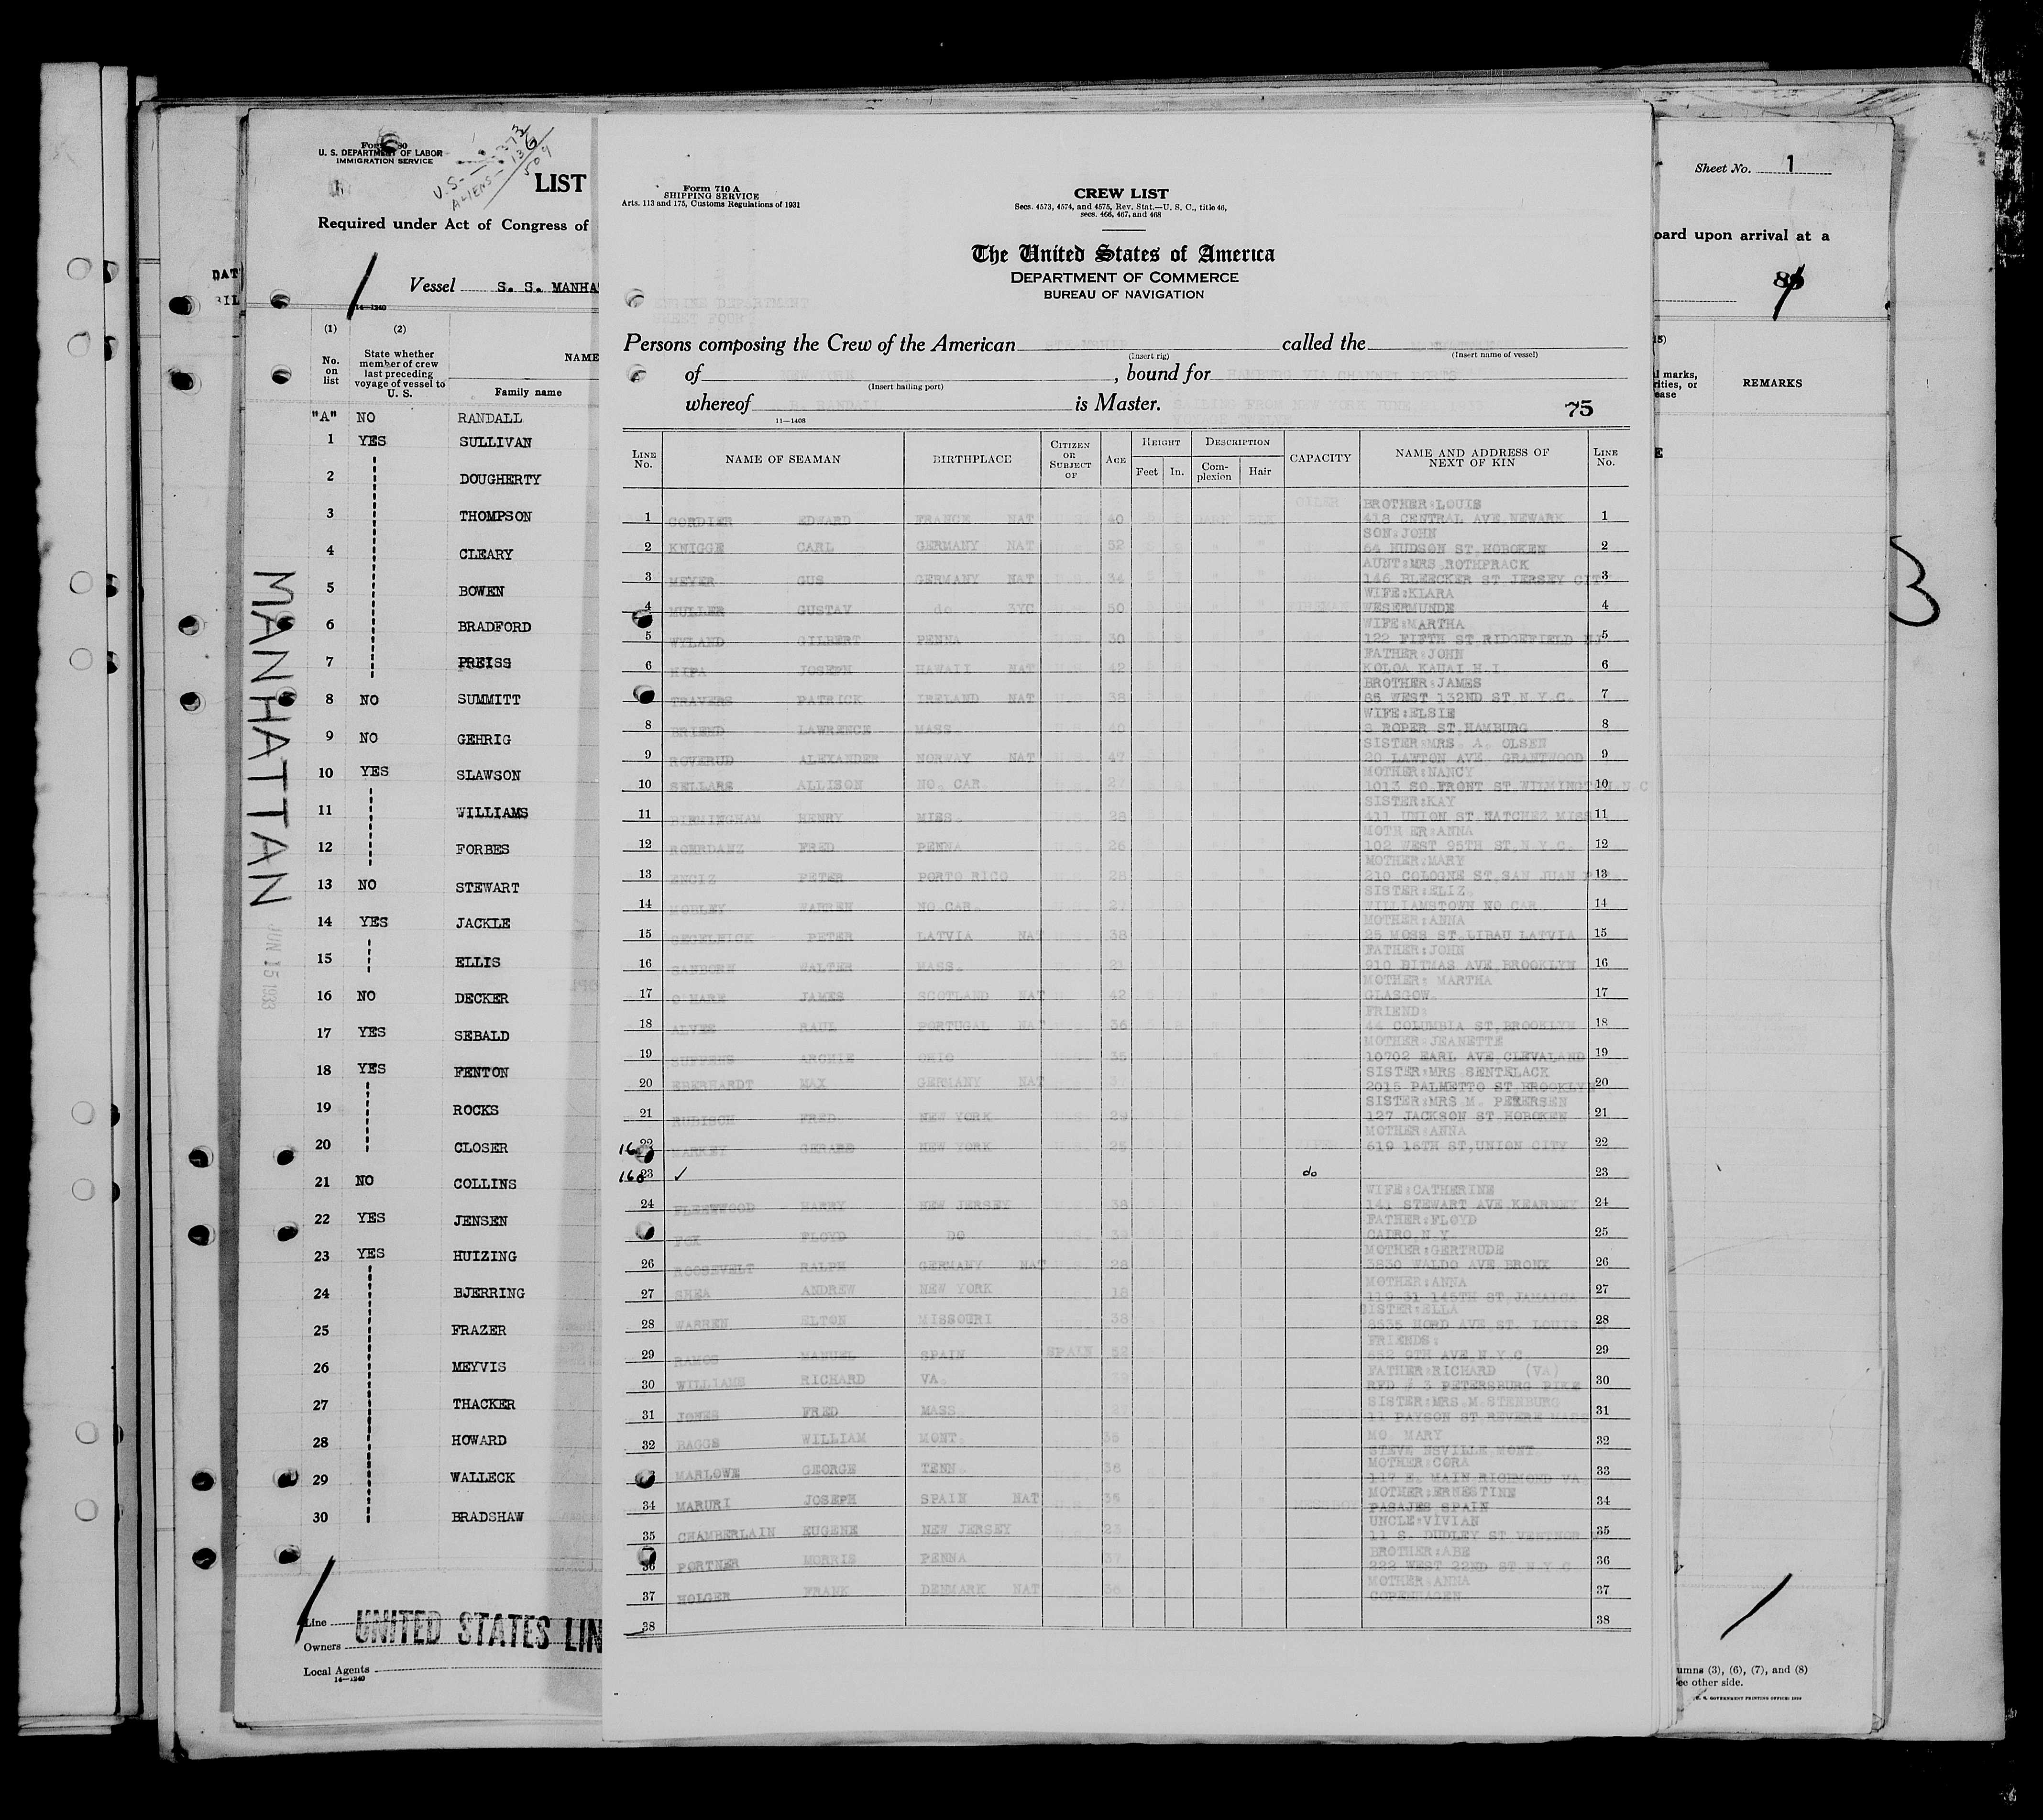 Form 680
U. S. DEPARTMENT OF LABOR
IMMIGRATION SERVICE
U.S. - 373
ALIENS - 136
509
LIST
Required under Act of Congress of
Vessel S. S. MANHA
14—1240
(1) (2)
No. on list State whether member of crew last preceding voyage of vessel to U. S. NAME
Family name
"A" NO RANDALL
1 YES SULLIVAN
2 DOUGHERTY
3 THOMPSON
4 CLEARY
5 BOWEN
6 BRADFORD
7 PREISS
8 NO SUMMITT
9 NO GEHRIG
10 YES SLAWSON
11 WILLIAMS
12 FORBES
13 NO STEWART
14 YES JACKLE
15 ELLIS
16 NO DECKER
17 YES SEBALD
18 YES FENTON
19 ROCKS
20 CLOSER
21 NO COLLINS
22 YES JENSEN
23 YES HUIZING
24 BJERRING
25 FRAZER
26 MEYVIS
27 THACKER
28 HOWARD
29 WALLECK
30 BRADSHAW
MANHATTAN
JUN 15 1933
Line
Owners UNITED STATES LIN
Local Agents
14—1240
Form 710 A
SHIPPING SERVICE
Arts. 113 and 175, Customs Regulations of 1931
CREW LIST
Secs. 4573, 4574, and 4575, Rev. Stat.—U. S. C., title 46,
secs. 466, 467, and 468
The United States of America
DEPARTMENT OF COMMERCE
BUREAU OF NAVIGATION
ENGINE DEPARTMENT
SHEET FOUR
Persons composing the Crew of the American STEAMSHIP called the MANHATTAN
(Insert rig) (Insert name of vessel)
of NEW YORK, bound for HAMBURG VIA CHANNEL PORTS
(Insert hailing port)
whereof RANDALL is Master. FROM NEW YORK JUNE
11—1408
75
LINE No. NAME OF SEAMAN BIRTHPLACE CITIZEN OR SUBJECT OF AGE HEIGHT DESCRIPTION CAPACITY NAME AND ADDRESS OF NEXT OF KIN LINE No.
Feet In. Complexion Hair
OILER BROTHER:LOUIS
1 CORDIER EDWARD FRANCE NAT 40 413 CENTRAL AVE NEWARK 1
SON:JOHN
2 KNIGGE CARL GERMANY NAT 52 64 HUDSON ST HOBOKEN 2
AUNT:MRS ROTHPRACK
3 MEYER GUS GERMANY NAT 34 146 BLEECKER ST JERSEY CITY 3
WIFE:KLARA
4 MULLER GUSTAV do 3YC 50 WESERMUNDE 4
WIFE:MARTHA
5 WYLAND GILBERT PENNA 30 122 FIFTH ST RIDGEFIELD NJ 5
FATHER:JOHN
6 NIPA JOSEPH HAWAII NAT 42 KOLOA KAUAI H.I. 6
BROTHER:JAMES
TRAVERS PATRICK IRELAND NAT 38 85 WEST 132ND ST.N.Y.C. 7
WIFE:ELSIE
8 LAWRENCE MASS. 40 3 ROPER ST HAMBURG 8
SISTER:MRS. A. OLSEN
9 ROVERUD ALEXANDER NORWAY NAT 47 20 LAWTON AVE. GRANTWOOD 9
MOTHER:NANCY
10 SELLARS ALLISON NO. CAR. 27 1013 SO.FRONT ST.WILMINGTON N C 10
SISTER:KAY
11 BIRMINGHAM HENRY MISS. 28 411 UNION ST.NATCHEZ MISS 11
MOTH ER:ANNA
12 ROERDANZ FRED PENNA 26 102 WEST 95TH ST.N.Y.C. 12
MOTHER:MARY
13 PETER PORTO RICO 28 210 COLOGNE ST.SAN JUAN P 13
SISTER:ELIZ.
14 MOBLEY WARREN NO CAR. 27 WILLIAMSTOWN NO CAR 14
MOTHER:ANNA
15 PETER LATVIA NAT 38 25 MOSS ST.LIBAU LATVIA 15
FATHER:JOHN
16 SANBORN WALTER MASS. 21 910 DITMAS AVE BROOKLYN 16
MOTHER: MARTHA
17 O HARE JAMES SCOTLAND NAT 42 GLASGOW. 17
FRIEND:
18 ALVES RAUL PORTUGAL NAT 36 44 COLUMBIA ST.BROOKLYN 18
MOTHER:JEANETTE
19 ARCHIE OHIO 35 10702 EARL AVE CLEVALAND 19
SISTER:MRS SENTELACK
20 EBERHARDT MAX GERMANY NAT 2015 PALMETTO ST BROOKLYN 20
SISTER:MRS M. PETERSEN
21 RUBISCH FRED NEW YORK 29 127 JACKSON ST HOBOKEN 21
MOTHER:ANNA
22 MARKEY GERARD NEW YORK 25 619 16TH ST,UNION CITY 22
23 ✓ do 23
WIFE:CATHERINE
24 FLEETWOOD HARRY NEW JERSEY 38 141 STEWART AVE KEARNEY 24
FATHER:FLOYD
FOX FLOYD DO 39 CAIRO N.Y. 25
MOTHER:GERTRUDE
26 ROOSEVELT RALPH GERMANY NAT 28 3830 WALDO AVE BRONX 26
MOTHER:ANNA
27 SHEA ANDREW NEW YORK 18 119-31 145TH ST JAMAICA 27
SISTER:ELLA
28 WARREN ELTON MISSOURI 38 8535 HORD AVE ST. LOUIS 28
FRIENDS:
29 RAMOS MANUEL SPAIN SPAIN 52 852 9TH AVE N.Y.C. 29
FATHER:RICHARD (VA)
30 WILLIAMS RICHARD VA. RFD # 3 PETERSBURG PIKE 30
SISTER:MRS M STENBURG
31 JONES FRED MASS. 11 PAYSON ST REVERE MASS 31
MO. MARY
32 BAGGS WILLIAM MONT. 35 STEVE NSVILLE MONT 32
MOTHER:CORA
MARLOWE GEORGE TENN. 38 117 E. MAIN RICHMOND VA. 33
MOTHER:ERNESTINE
34 MARURI JOSEPH SPAIN NAT 35 PASAJES SPAIN 34
UNCLE:VIVIAN
35 CHAMBERLAIN EUGENE NEW JERSEY 23 11 S. DUDLEY ST VENTNOR 35
BROTHER:ABE
36 PORTNER MORRIS PENNA 37 222 WEST 22ND ST N.Y.C 36
MOTHER:ANNA
37 HOLGER FRANK DENMARK NAT 36 COPENHAGEN 37
38 38
Sheet No. 1
oard upon arrival at a
REMARKS
3
umns (3), (6), (7), and (8)
ee other side.
U. S. GOVERNMENT PRINTING OFFICE